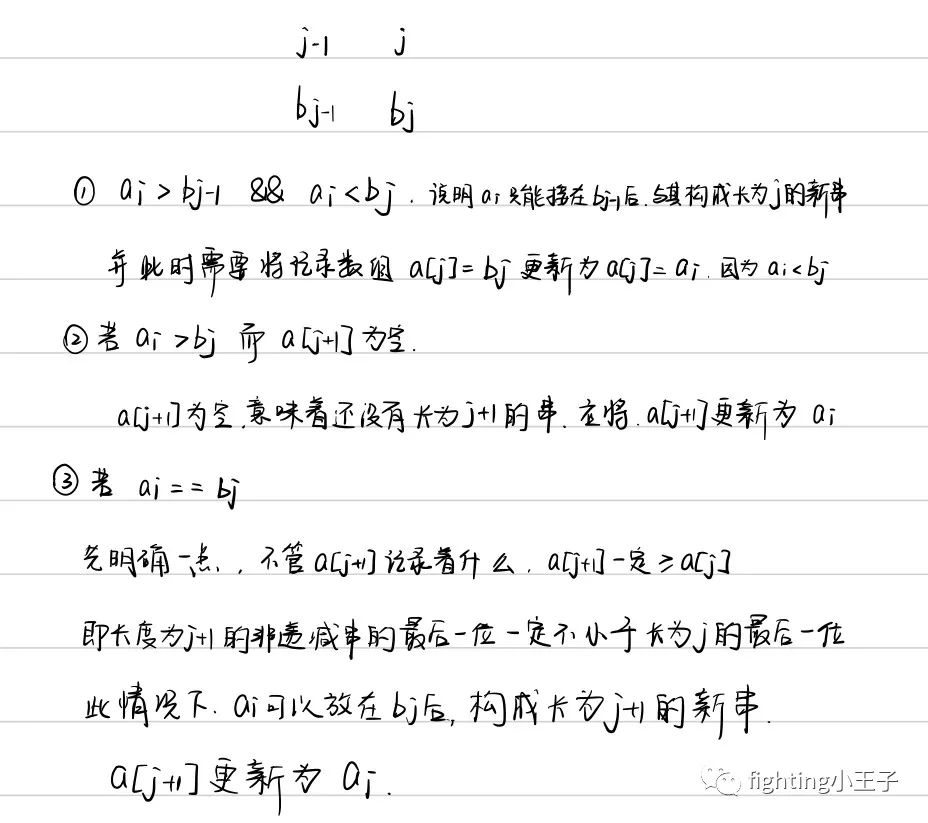 j-1 j
bj-1 bj
① ai > bj-1 && ai < bj . 说明 ai 只能接在 bj-1后. 与其构成长为 j 的新串
并此时需要将记录数组 a[j] = bj 更新为 a[j] = ai . 因为 ai < bj
② 若 ai > bj 而 a[j+1] 为空.
a[j+1]为空, 意味着还没有长为 j+1 的串. 应将 . a[j+1]更新为 ai
③ 若 ai == bj
先明确一点, 不管 a[j+1] 记录着什么 . a[j+1]一定 ≥ a[j]
即长度为j+1 的非递减串的最后一位一定不小于长为 j 的最后一位
此情况下. ai 可以放在 bj后, 构成长为 j+1 的新串.
a[j+1] 更新为 ai .
fighting小王子